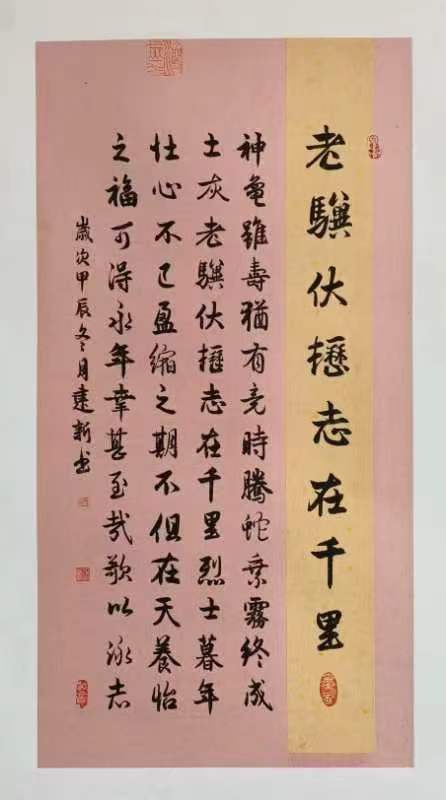 老驥伏櫪志在千里
神龜雖壽猶有竟時騰蛇乘霧終成
土灰老驥伏櫪志在千里烈士暮年
壯心不已盈縮之期不但在天養怡
之福可得永年幸甚至哉歌以詠志
歲次甲辰冬月建新书